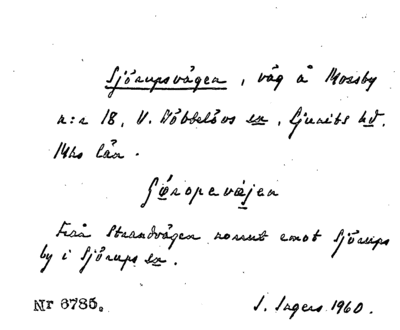 Sjörupsvägen, väg å Mossby
n:r 18, V. Nöbbelövs sn, Ljunits hd.
Mhs län.
Från Strandvägen norrut emot Sjörups
by i Sjörups sn.
Nr 6785. I. Ingers 1960.